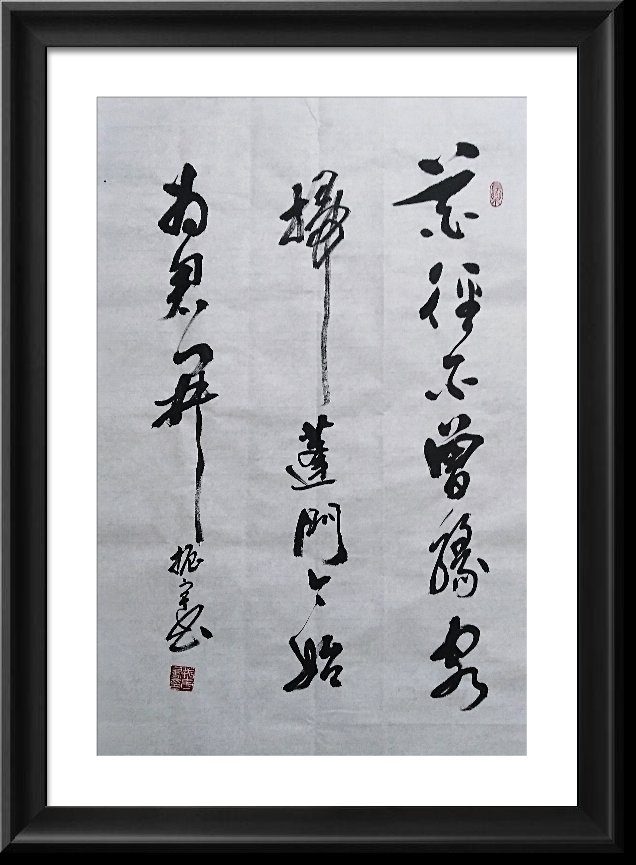 花径不曾緣客
掃蓬門今始
为君開
振宇书